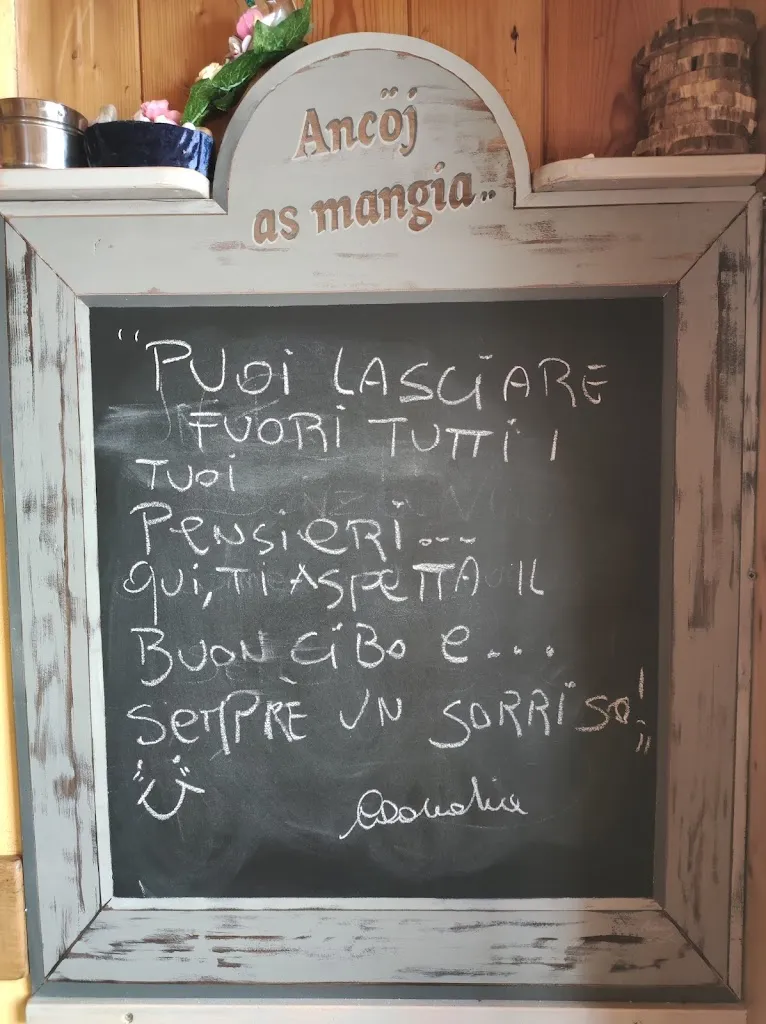 Ancöj
as mangia..
"PUOI LASCIARE
FUORI TUTTI I
TUOI
PENSIERI...
QUI, TI ASPETTA IL
BUON CIBO E...
SEMPRE UN SORRISO!"